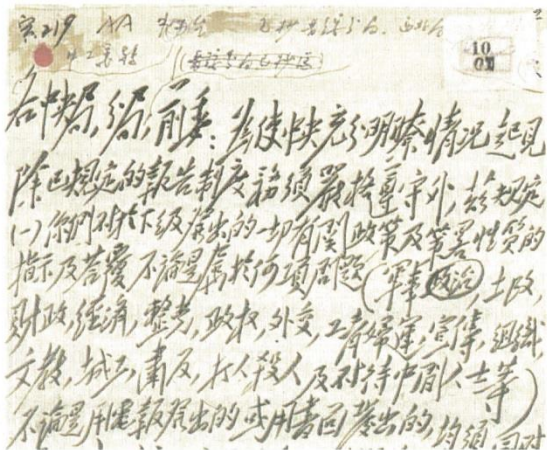 10
各中央局,分局,前委:为使中央充分明瞭情况起見
除已規定的報告制度務須嚴格遵守外,兹規定
(一)你們对於下級發出的一切有関政策及策畧性質的
指示及荅覆不論是属於何項問題(軍事,政治,土改,
財政,經濟,整党,政权,外交,工青婦運,宣傳,組織,
文教,城工,肅反,打人殺人及对待中間人士等)
不論是用電報發出的或用書面發出的,均須同时